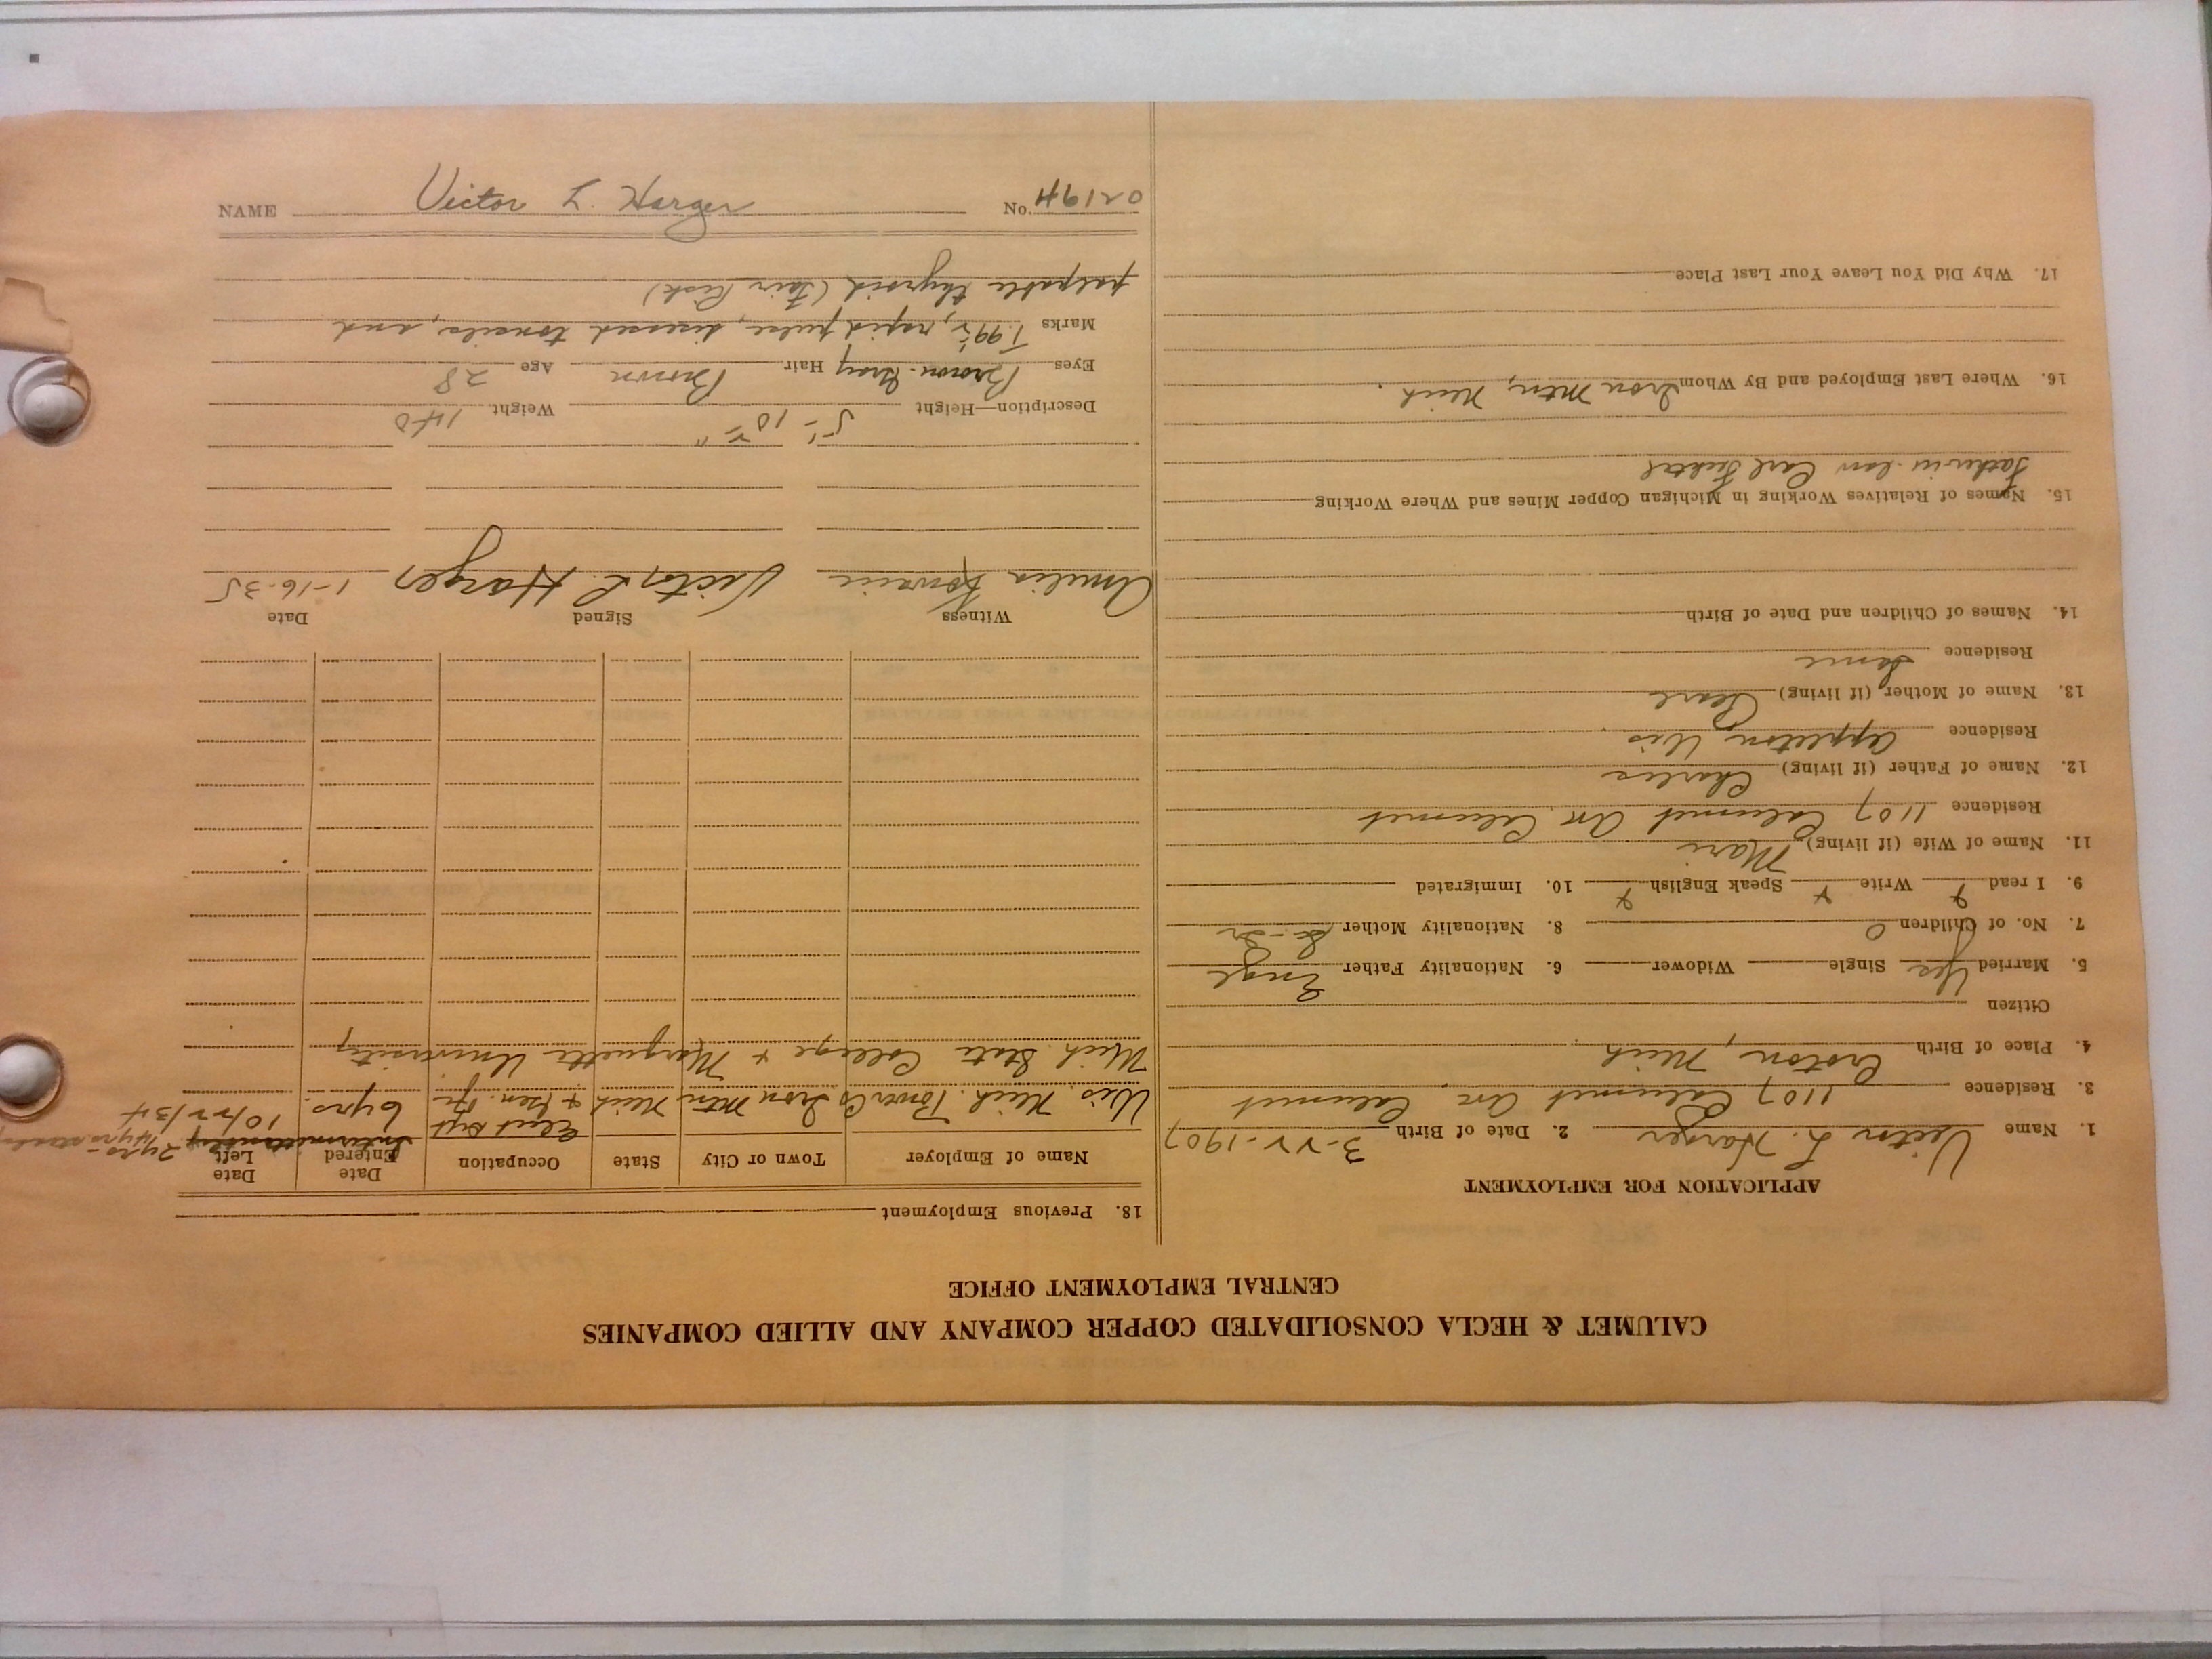 CALUMET & HECLA CONSOLIDATED COPPER COMPANY AND ALLIED COMPANIES
CENTRAL EMPLOYMENT OFFICE
APPLICATION FOR EMPLOYMENT
1. Name Victor L. Harger 2. Date of Birth 3-22-1907
3. Residence 1107 Calumet Ave Calumet
4. Place of Birth Croton, Mich.
Citizen
5. Married Yes Single Widower 6. Nationality Father Engl
7. No. of Children 0 8. Nationality Mother
9. I read Write Speak English 10. Immigrated
11. Name of Wife (if living) Marie
Residence 1107 Calumet Ave. Calumet
12. Name of Father (if living) Charles
Residence Appleton Wis.
13. Name of Mother (if living) Pearl
Residence Same
14. Names of Children and Date of Birth
15. Names of Relatives Working in Michigan Copper Mines and Where Working
Father-in-law Carl
16. Where Last Employed and By Whom Iron Mtn, Mich.
17. Why Did You Leave Your Last Place
18. Previous Employment
Name of Employer Town or City State Occupation Date Entered Date Left
Elect Dept Intermittently 2 yrs-
Wis. Mich. Power Co Iron Mtn Mich & Gen. 6 yrs. 10/22/34
Mich State College + Marquette University
Witness Signed Date
Amelia Victor L. Harger 1-16-35
Description—Height 5'-10½" Weight 140
Eyes Brown-Gray Hair Brown Age 28
Marks T.99², rapid pulse, diseased tonsils, and
palpable thyroid (Fair Risk)
NAME Victor L. Harger No. 02194